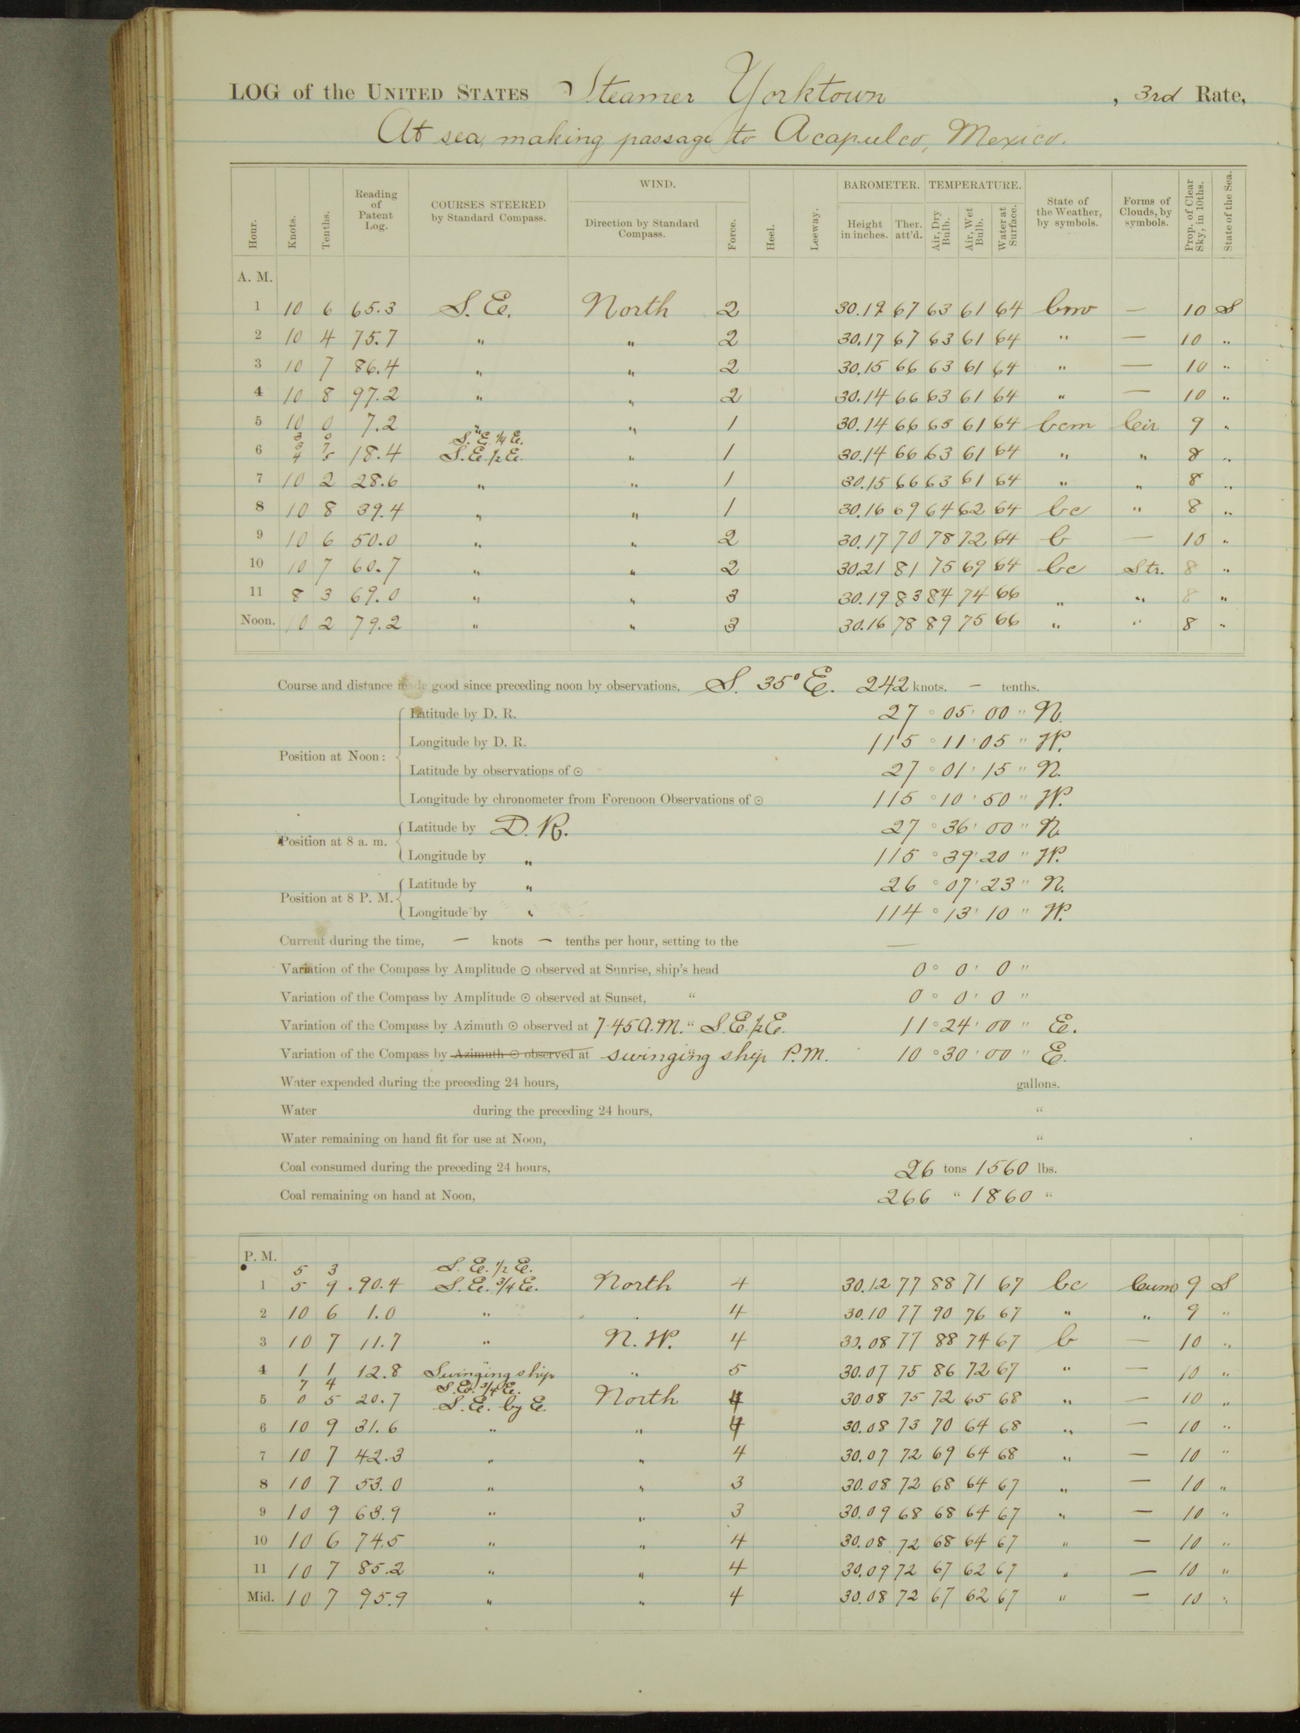 LOG of the UNITED STATES Steamer Yorktown, 3rd Rate,
At sea, making passage to Acapulco, Mexico.
Hour. Knots. Tenths. Reading of Patent Log. COURSES STEERED by Standard Compass. WIND. Direction by Standard Compass. Force. Heel. Leeway. BAROMETER. Height in inches. Ther. att'd. TEMPERATURE. Air, Dry Bulb. Air, Wet Bulb. Water at Surface. State of the Weather, by symbols. Forms of Clouds, by symbols. Prop. of Clear Sky, in 10ths. State of the Sea.
A. M.
1 10 6 65.3 S. E. North 2 30.19 67 63 61 64 bm — 10 S
2 10 4 75.7 " " 2 30.17 67 63 61 64 " — 10 "
3 10 7 86.4 " " 2 30.15 66 63 61 64 " — 10 "
4 10 8 97.2 " " 2 30.14 66 63 61 64 " — 10 "
5 10 0 7.2 " " 1 30.14 66 65 61 64 bcm Cir 9 "
S. E. 1/4 E.
6 18.4 S. E. 1/2 E. " 1 30.14 66 63 61 64 " " 8 "
7 10 2 28.6 " " 1 30.15 66 63 61 64 " " 8 "
8 10 8 39.4 " " 1 30.16 69 64 62 64 bc " 8 "
9 10 6 50.0 " " 2 30.17 70 78 72 64 b — 10 "
10 10 7 60.7 " " 2 30.21 81 75 69 64 bc Str. 8 "
11 8 3 69.0 " " 3 30.19 83 84 74 66 " " 8 "
Noon. 10 2 79.2 " " 3 30.16 78 89 75 66 " " 8 "
Course and distance made good since preceding noon by observations, S. 35° E. 242 knots. — tenths.
Position at Noon:
Latitude by D. R. 27 ° 05 ' 00 " N.
Longitude by D. R. 115 ° 11 ' 05 " W.
Latitude by observations of ☉ 27 ° 01 ' 15 " N.
Longitude by chronometer from Forenoon Observations of ☉ 115 ° 10 ' 50 " W.
Position at 8 a. m.
Latitude by D. R. 27 ° 36 ' 00 " N
Longitude by " 115 ° 39 ' 20 " W.
Position at 8 P. M.
Latitude by " 26 ° 07 ' 23 " N.
Longitude by " 114 ° 13 ' 10 " W.
Current during the time, — knots — tenths per hour, setting to the —
Variation of the Compass by Amplitude ☉ observed at Sunrise, ship's head 0 ° 0 ' 0 "
Variation of the Compass by Amplitude ☉ observed at Sunset, " 0 ° 0 ' 0 "
Variation of the Compass by Azimuth ☉ observed at 7-45 A.M. " S. E. 1/2 E. 11 ° 24 ' 00 " E.
Variation of the Compass by Azimuth ☉ observed at swinging ship P.M. 10 ° 30 ' 00 " E.
Water expended during the preceding 24 hours, gallons.
Water during the preceding 24 hours, "
Water remaining on hand fit for use at Noon, "
Coal consumed during the preceding 24 hours, 26 tons 1560 lbs.
Coal remaining on hand at Noon, 266 " 1860 "
P. M.
5 3 S. E. 1/2 E.
1 5 9 .90.4 S. E. 3/4 E. North 4 30.12 77 88 71 67 bc Cum 9 S
2 10 6 1.0 " " 4 30.10 77 90 76 67 " " 9 "
3 10 7 11.7 " N. W. 4 30.08 77 88 74 67 b — 10 "
4 1 1 12.8 Swinging ship " 5 30.07 75 86 72 67 " — 10 "
7 4 S. E. 3/4 E.
5 0 5 20.7 S. E. by E. North 4 30.08 75 72 65 68 " — 10 "
6 10 9 31.6 " " 4 30.08 73 70 64 68 " — 10 "
7 10 7 42.3 " " 4 30.07 72 69 64 68 " — 10 "
8 10 7 53.0 " " 3 30.08 72 68 64 67 " — 10 "
9 10 9 63.9 " " 3 30.09 68 68 64 67 " — 10 "
10 10 6 74.5 " " 4 30.08 72 68 64 67 " — 10 "
11 10 7 85.2 " " 4 30.09 72 67 62 67 " — 10 "
Mid. 10 7 95.9 " " 4 30.08 72 67 62 67 " — 10 "